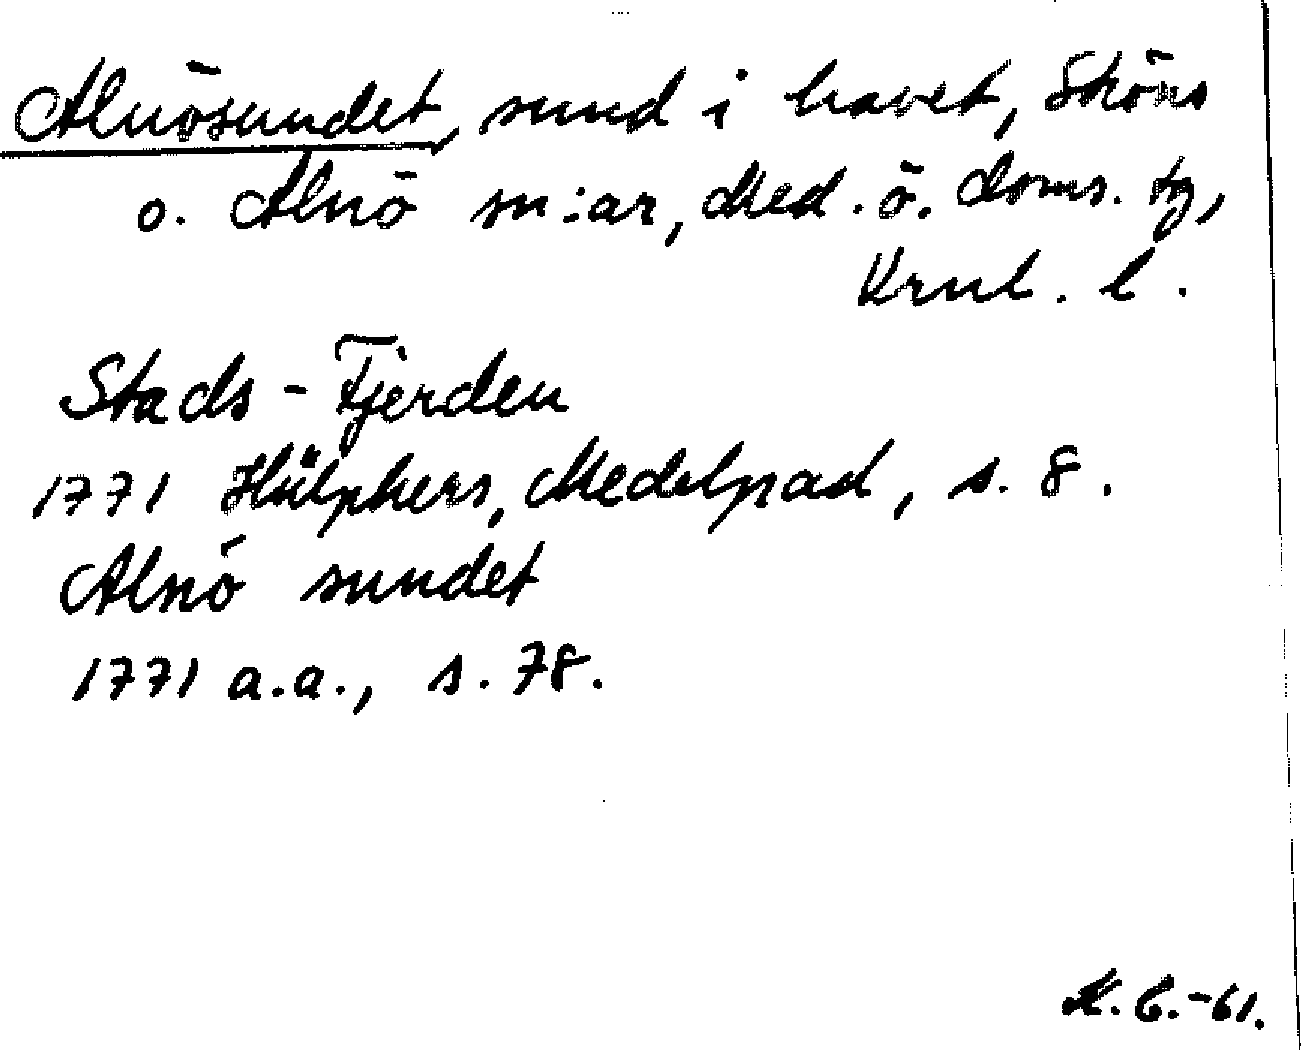 Alnösundet, sund i havet, Sköns
o. Alnö sn:ar, Med. ö. doms. tg,
Krnl. l.
Stads-Fjerden
1771 Hülphers, Medelpad, s. 8.
Alnö sundet
1771 a.a., s. 78.
-61.